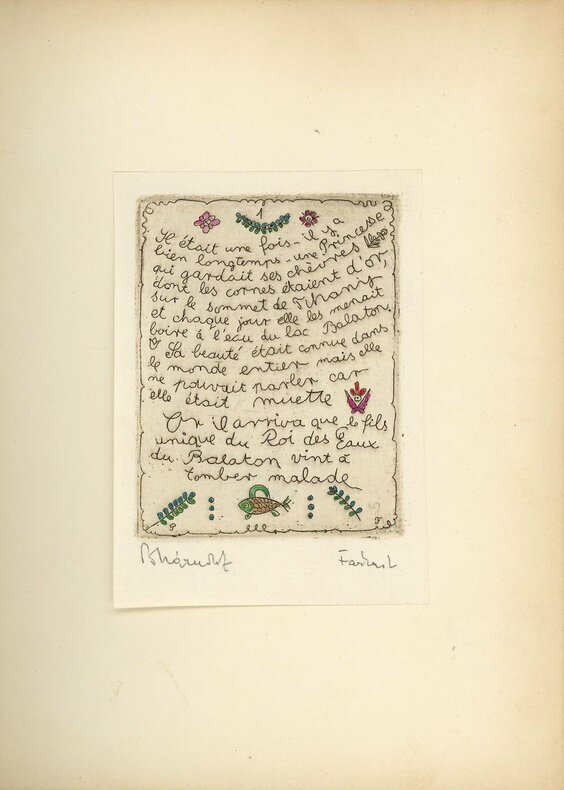 1
Il était une fois - il y a
bien longtemps - une Princesse
qui gardait ses chèvres
dont les cornes étaient d'or,
sur le sommet de Tihany
et chaque jour elle les menait
boire à l'eau du lac Balaton.
Sa beauté était connue dans
le monde entier mais elle
ne pouvait parler car
elle était muette
Or il arriva que le fils
unique du Roi des Eaux
du Balaton vint à
tomber malade
P F